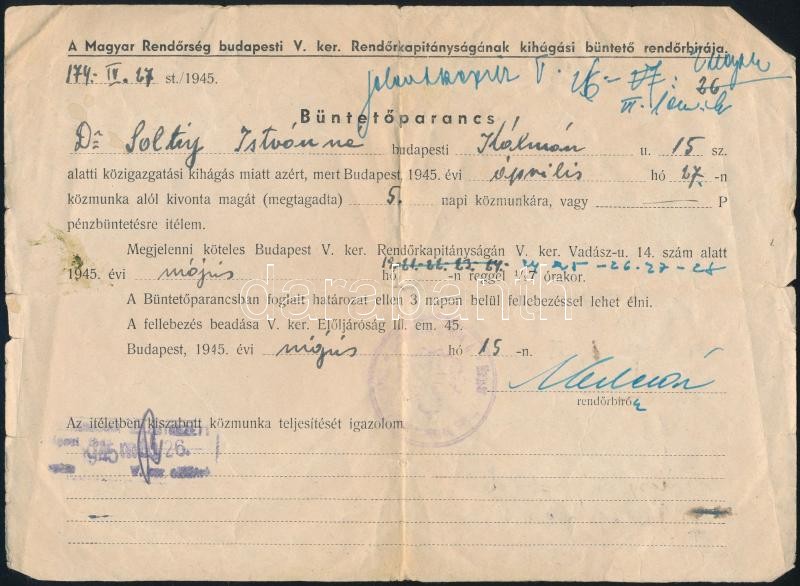 A Magyar Rendőrség budapesti V. ker. Rendőrkapitányságának kihágási büntető rendőrbírája.
174- IV. 27 st./1945.
V. 26 - 27. 26
Büntetőparancs
Dr Istvánné budapesti Kálmán u. 15 sz.
alatti közigazgatási kihágás miatt azért, mert Budapest, 1945. évi április hó 27-n
közmunka alól kivonta magát (megtagadta) 5. napi közmunkára, vagy — P
pénzbüntetésre ítélem.
Megjelenni köteles Budapest V. ker. Rendőrkapitányságán V. ker. Vadász-u. 14. szám alatt
1945. évi május hó 24 25 - 26. 27 - 28 -n reggel ½7 órakor.
A Büntetőparancsban foglalt határozat ellen 3 napon belül fellebezéssel lehet élni.
A fellebezés beadása V. ker. Előljáróság III. em. 45.
Budapest, 1945. évi május hó 15 -n.
rendőrbíró
Az ítéletben kiszabott közmunka teljesítését igazolom
945 máj 26.
darabanth